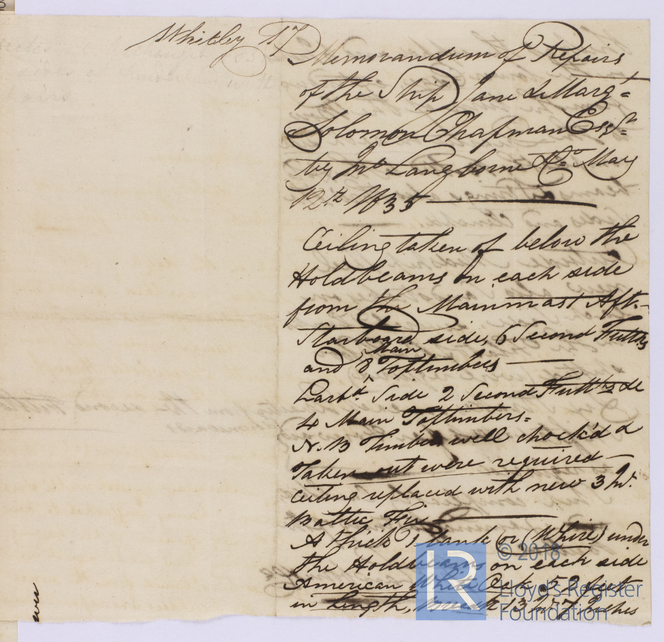 Whitby 17
Memorandum of Repairs
of the Ship Jane & Margt
Solomon Chapman Esqr
by Mr Langborne & Co May
12th 1835
Ceiling taken of below the
Holdbeams on each side
from the Mainmast Aft.
Starboard side, 6 Second Futtks
and 8 Main Toptimbers
Larbd Side 2 Second Futtks &
4 Main Toptimbers.
N.B Timbers well chock'd &
Taken out were required
Ceiling replaced with new 3 In.
Baltic Fir
A thick Plank or (Whire) under
the Holdbeams on each side
American White Oak 52 feet
in length,
© 2018
LR
Lloyd's Register
Foundation